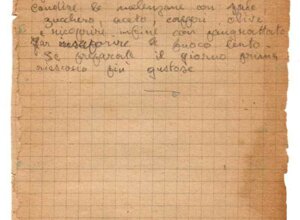 condire le melenzane con
zucchero, aceto, capperi olive
e ricoprire infine con pangrattato
Far insaporire a fuoco lento.
Se preparate il giorno prima
riescono più gustose